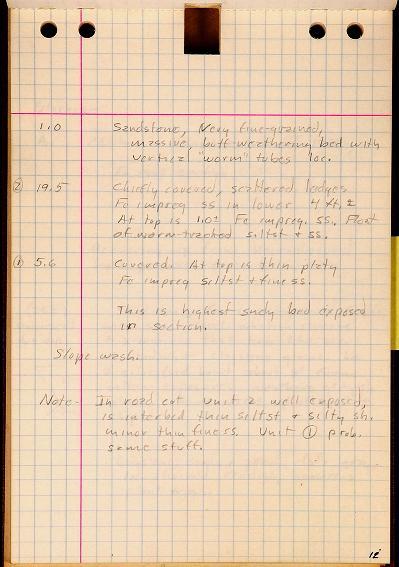 1.0 Sandstone, Very fine-grained,
massive, buff-weathering bed with
vertical "worm" tubes loc.
② 19.5 Chiefly covered, scattered ledges
Fe impreg ss in lower 4 ft. ±
At top is 1.0± Fe impreg. ss. Float
of worm-tracked siltst + ss.
① 5.6 Covered. At top is thin platy
Fe impreg siltst + fine ss.
This is highest sndy bed exposed
in section.
Slope wash.
Note - In road cut Unit 2 well exposed,
is interbed thin siltst + silty sh.
minor thin fine ss. Unit ① prob.
same stuff.